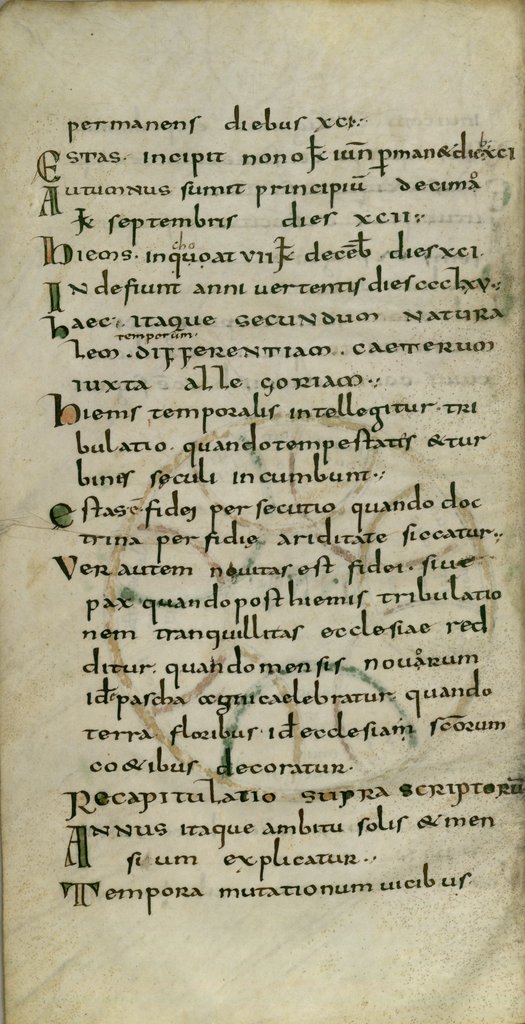 permanens diebus xci·
Estas· incipit nono k̄ iun̄ p̄man& dieb; xci
Autumnus sumit principiū decimA
k̄ septembris dies xcii·
hiems· inquoat vii k̄ decēb dies xci·
cho
In defiunt anni uertentis dies ccclxv·
haec· itaque secundum natura
temporum·
lem· differentiam· caeterum
iuxta allegoriam·
hiems temporalis intellegitur tri
bulatio· quando tempestatis &tur
bines sęculi incumbunt·
Estas ē fidei persecutio quando doc
trina perfidię ariditate siccatur·
Ver autem nouitas est fidei· siue
pax quando post hiemis tribulatio
nem tranquillitas ecclesiae red
ditur· quando mensis nouarum
id ē pascha agni caelebratur· quando
terra floribus· id ē ecclesiam scōrum
co&ibus decoratur·
Recapitulatio supra scriptorū
Annus itaque ambitu solis & men
sium explicatur·
Tempora mutationum uicibus